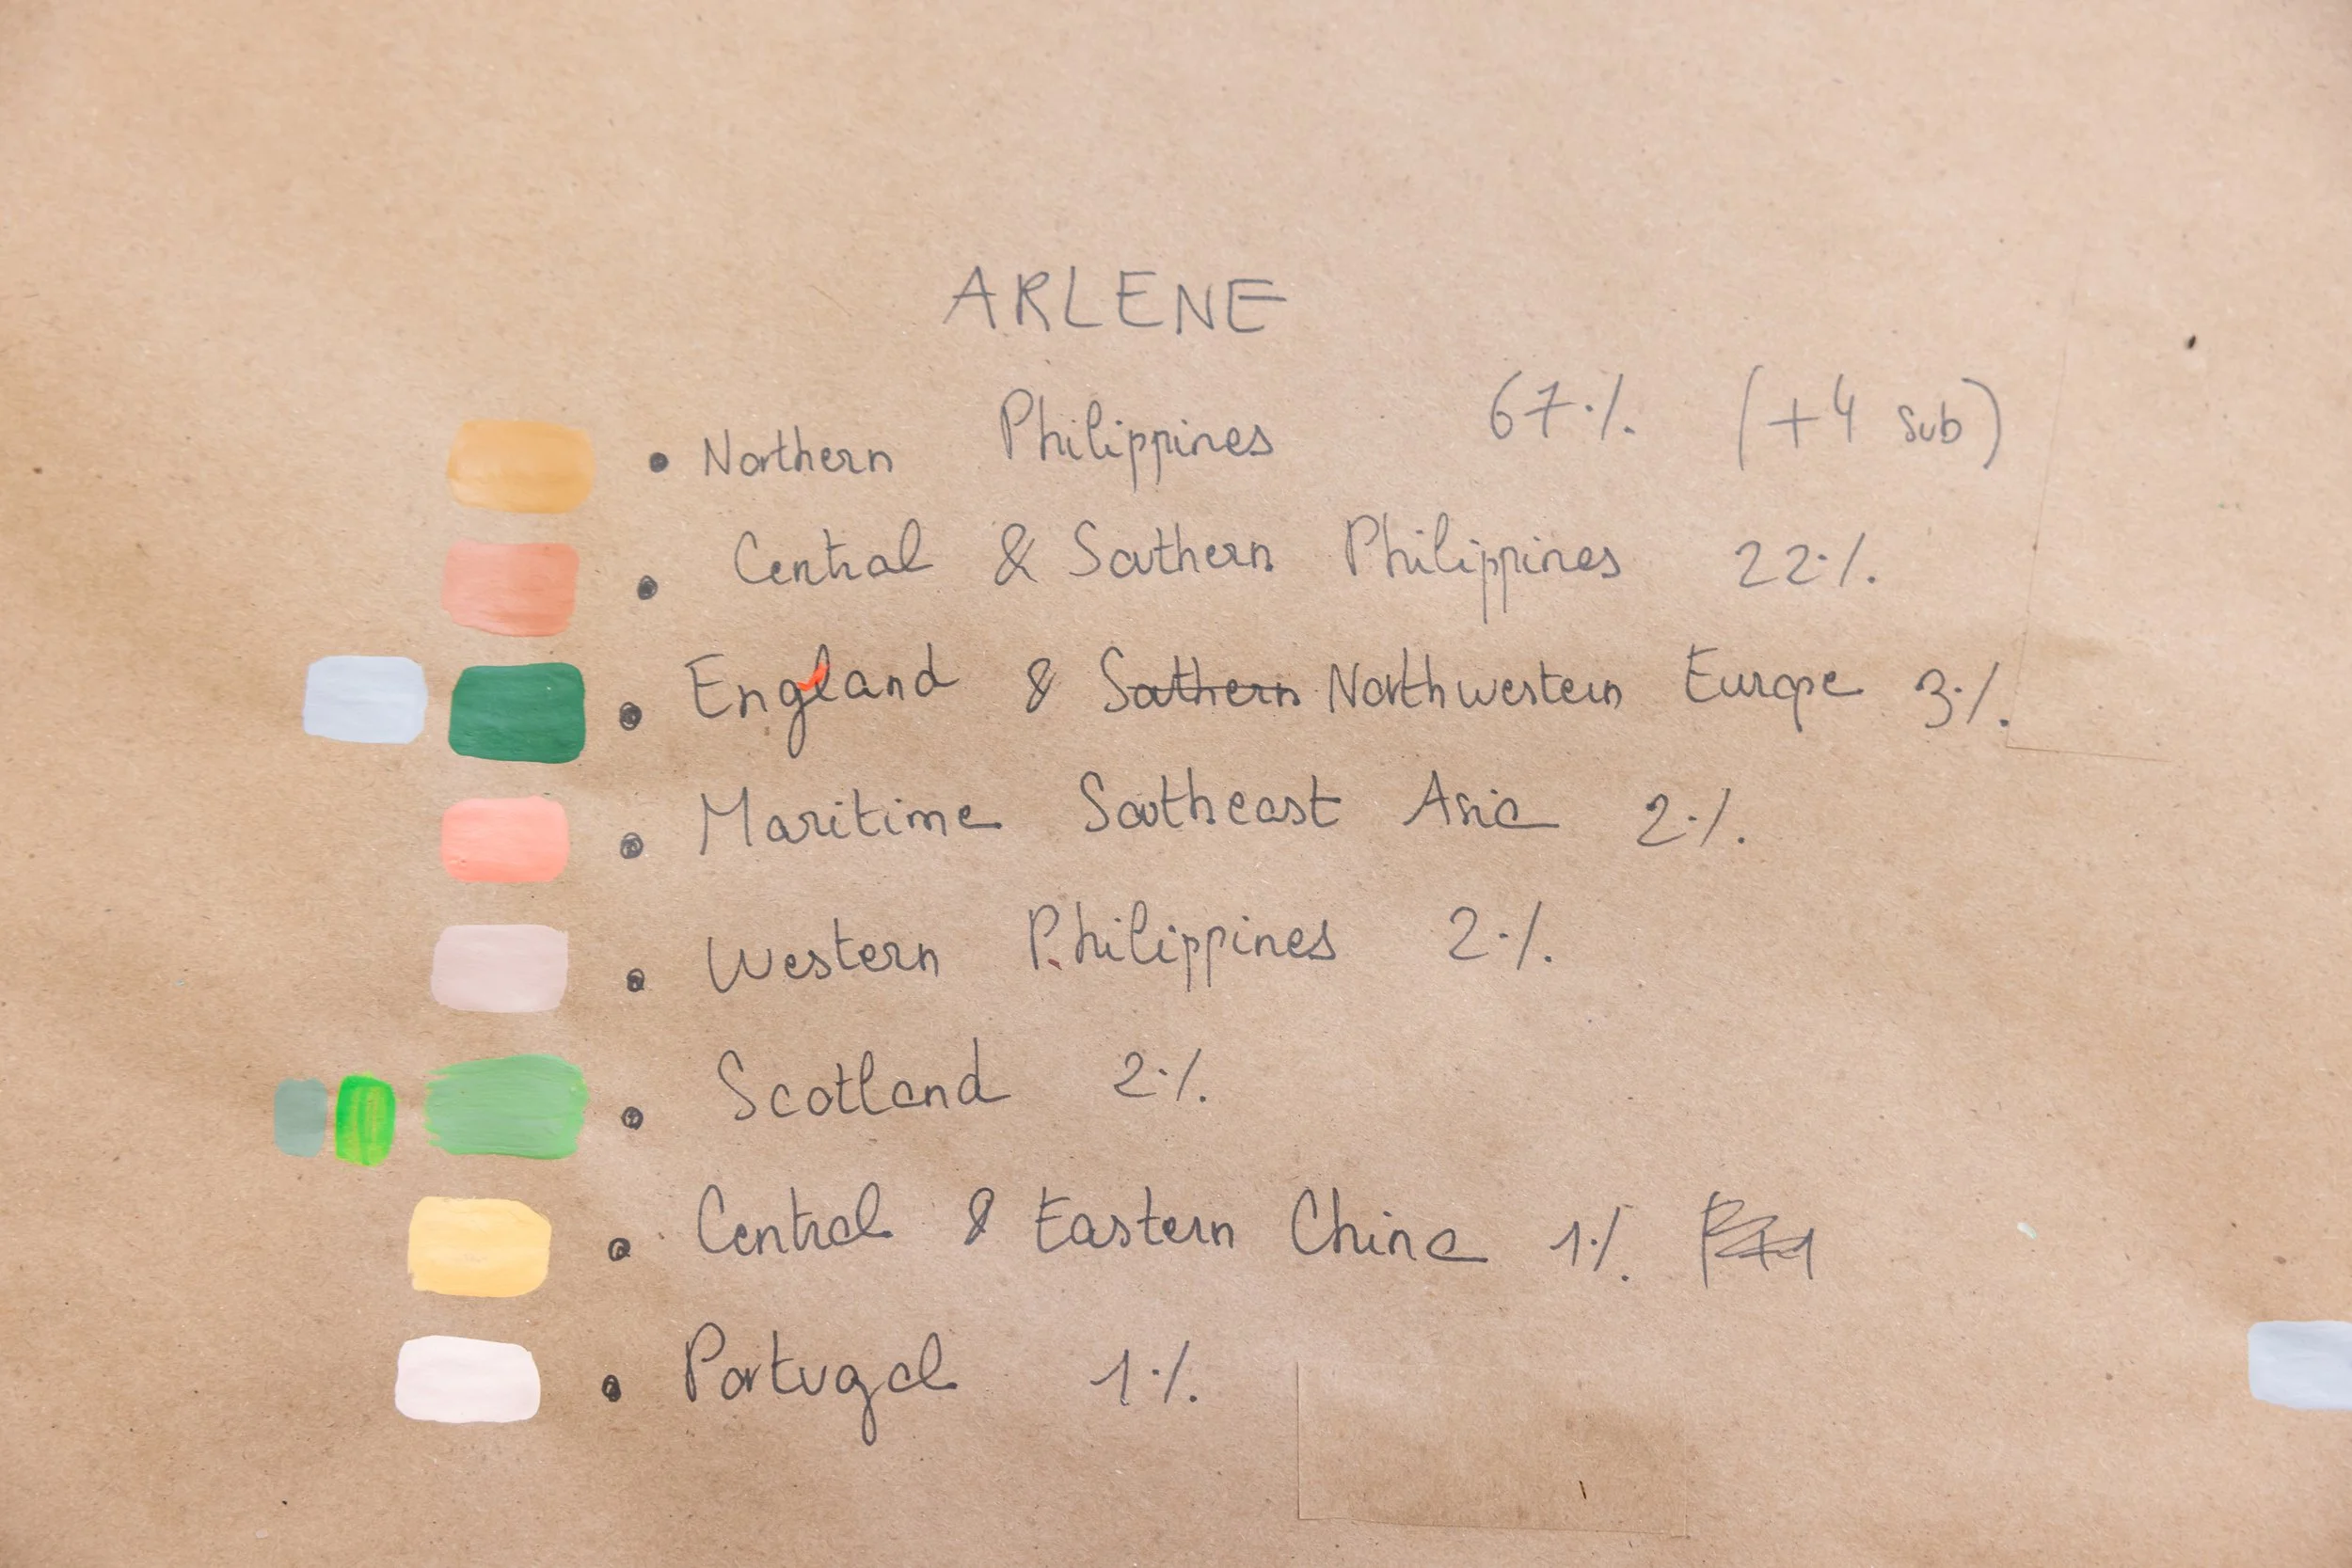 ARLENE
• Northern Philippines 67% (+4 sub)
• Central & Southern Philippines 22%
• England & Southern Northwestern Europe 3%
• Maritime Southeast Asia 2%
• Western Philippines 2%
• Scotland 2%
• Central & Eastern China 1%
• Portugal 1%